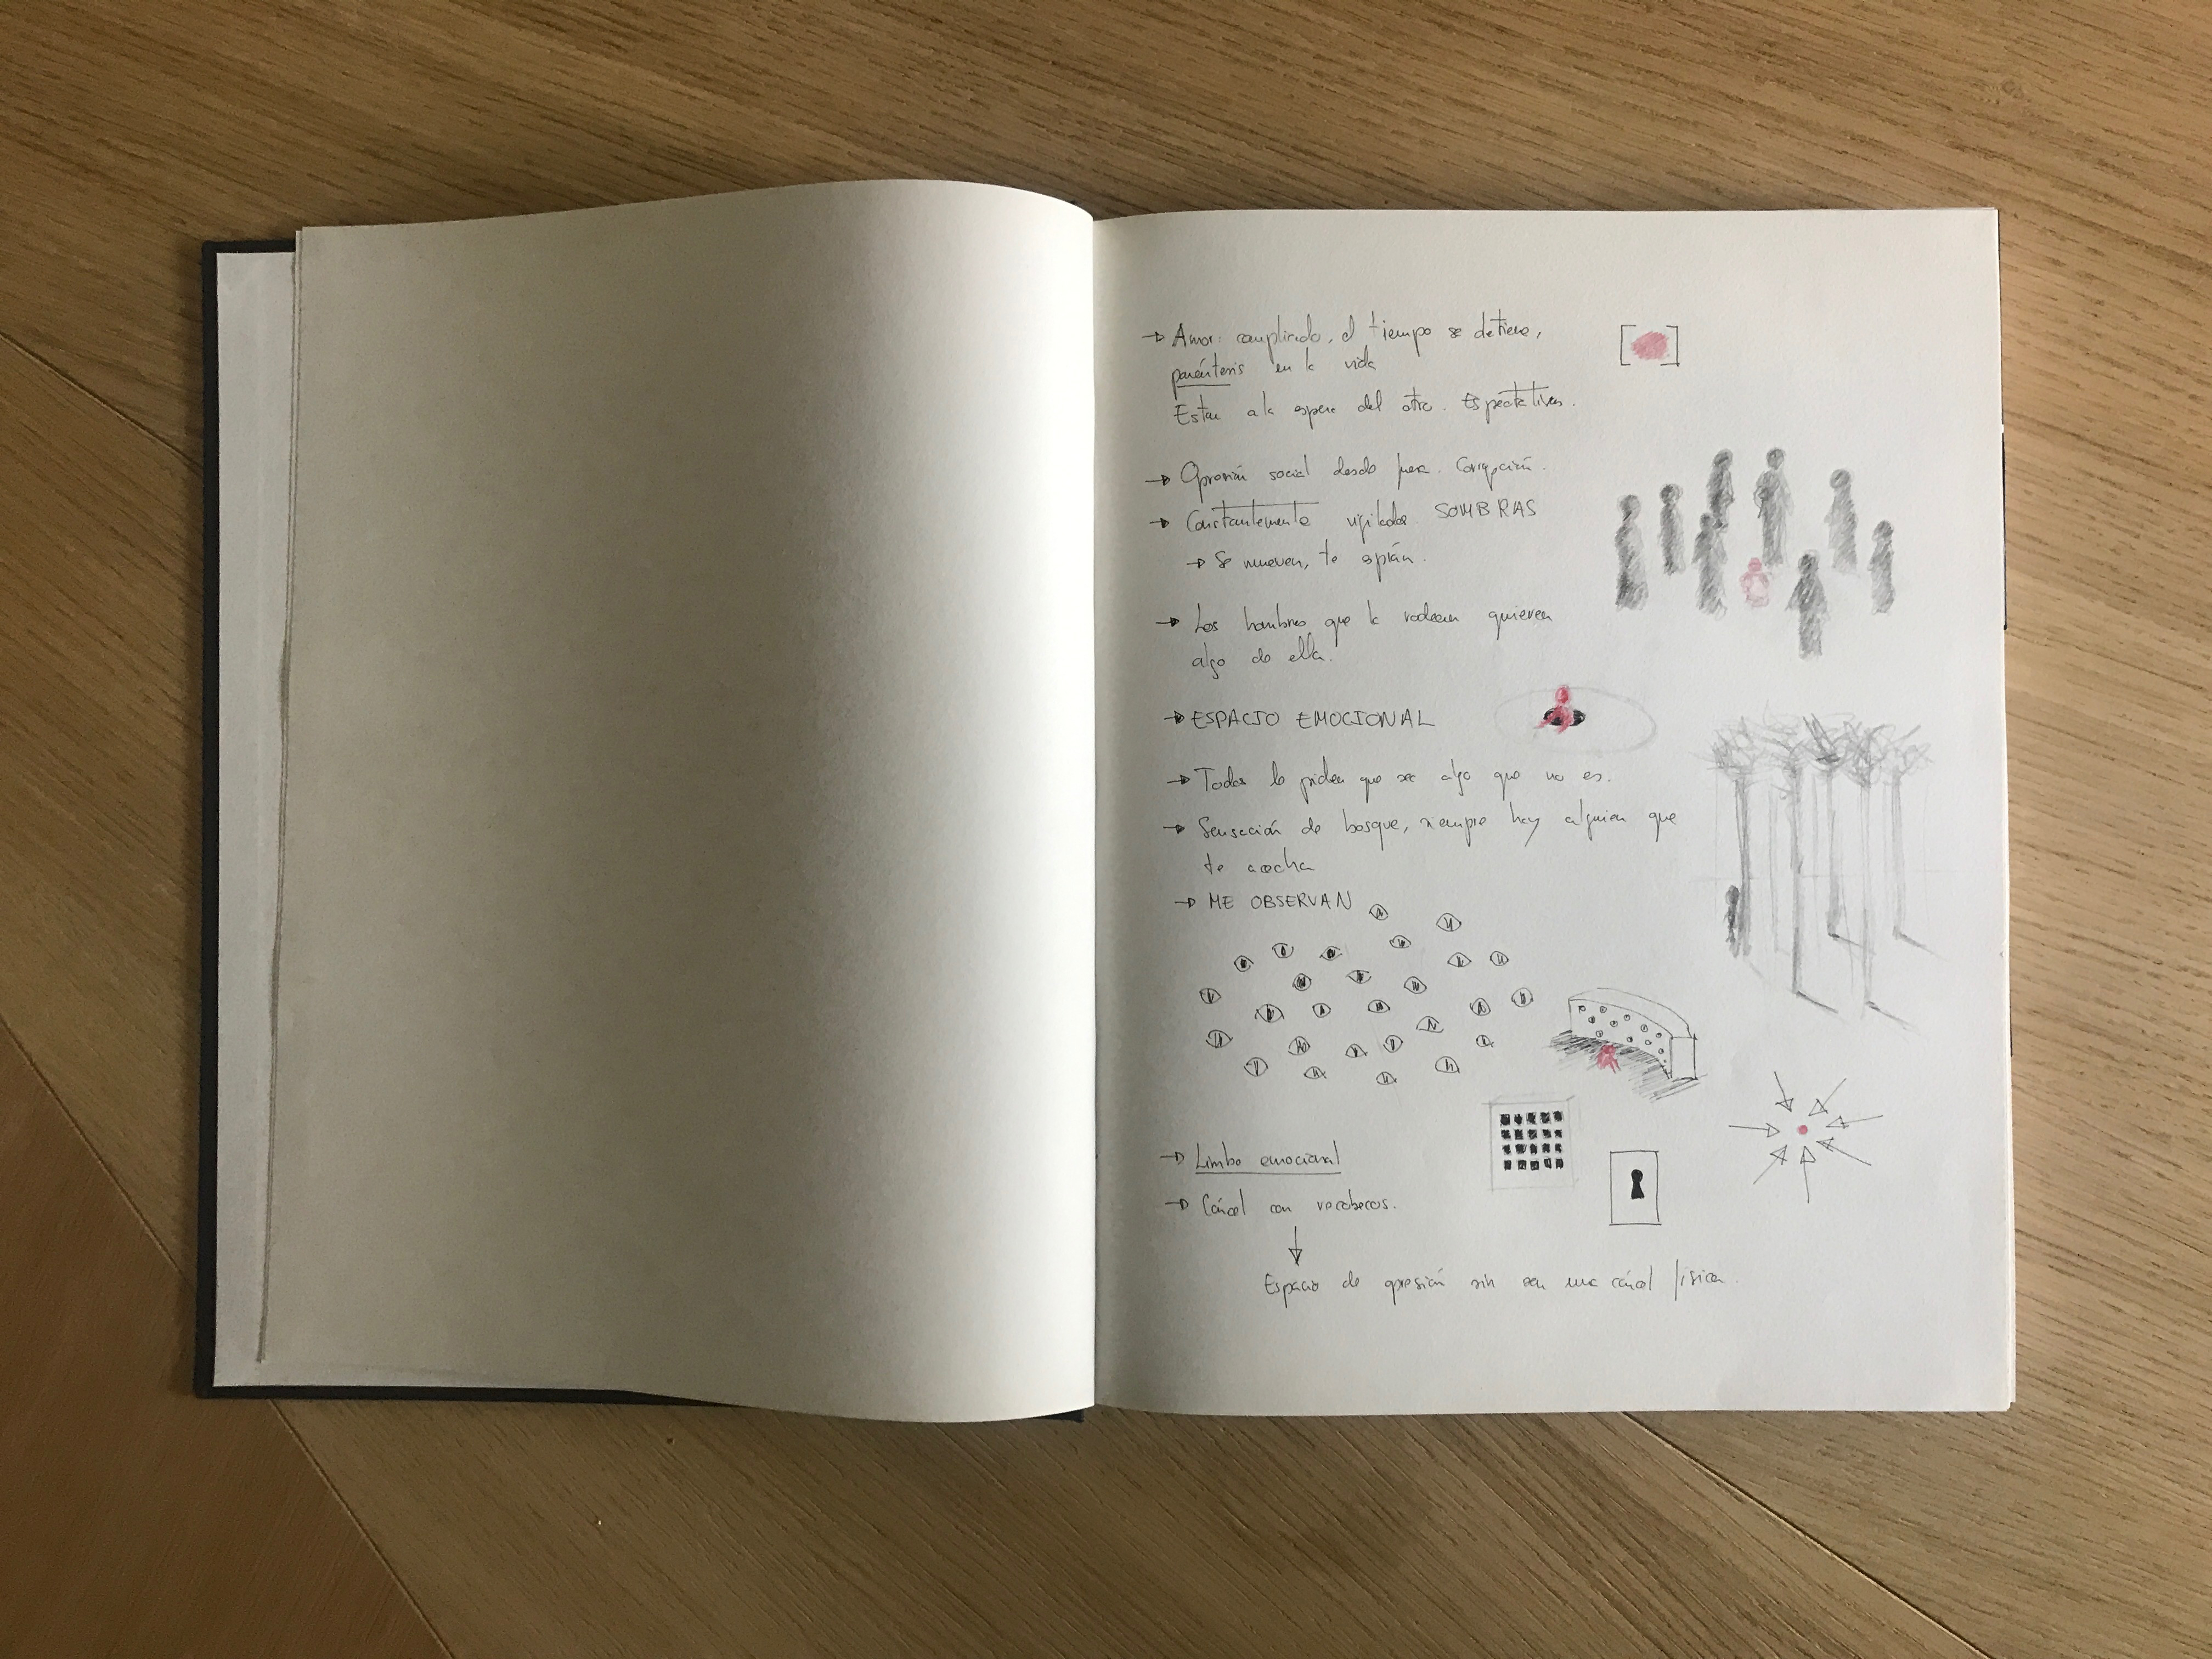 → Amor: complicado, el tiempo se detiene,
paréntesis en la vida
Estar a la espera del otro. Espectativas.
→ Opresión social desde fuera. Corrupción.
→ Constantemente vigilados SOMBRAS
→ Se mueven, te espían.
→ Los hombres que la rodean quieren
algo de ella.
→ ESPACIO EMOCIONAL
→ Todos le piden que sea algo que no es.
→ Sensación de bosque, siempre hay alguien que
te acecha
→ ME OBSERVAN
→ Limbo emocional
→ Cárcel con recobecos.
Espacio de opresión sin ser una cárcel física.